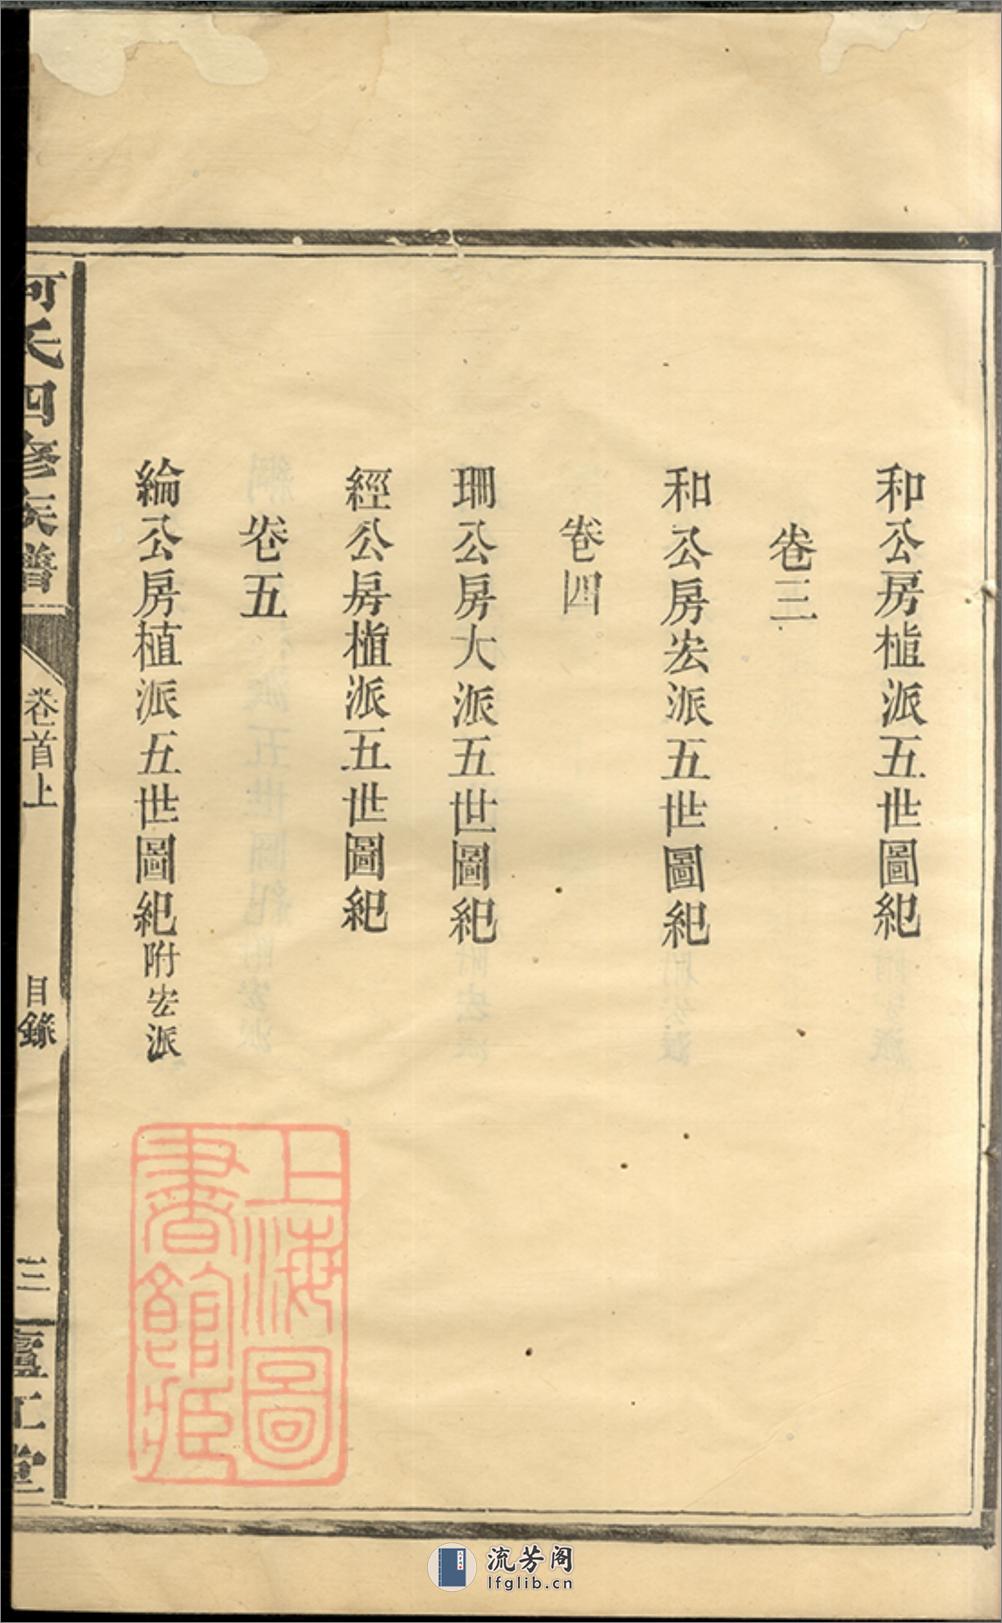 和公房植派五世圖紀
卷三
和公房宏派五世圖紀
卷四
珊公房大派五世圖紀
經公房植派五世圖紀
卷五
綸公房植派五世圖紀附宏派
何氏四修族譜
卷首上
目錄
三
廬江堂
上海圖書館藏
流芳阁
lfglib.cn